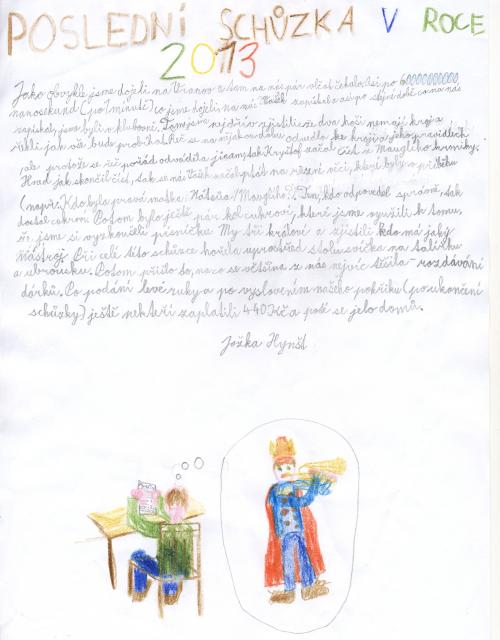 POSLEDNÍ SCHŮZKA V ROCE
2013
Jako obvykle jsme dojeli na Vranov a tam na nás pár včeta čekalo asi po 60000000000
nanosekund (po 1 minutě) co jsme dojeli na nás Vašek zapískal a asi po stejné době co na nás
zapískal, jsme byli v klubovně. Tam jsme nejdříve zjistili, že dva hoši nemají kroj a
řekli jak vše bude probíhat. Řeč se na nějakou dobu odvedla ke kroji a jeho pravidlech
, ale protože se řeč pořád odváděla jinam, tak Kryštof začal číst z Mauglího kroniky.
Hned jak skončil číst, tak se nás Vašek začal ptát na různé věci, které byly v příběhu
(např.: Kdo byla pravá matka Natsua/Mauglího?). Ten, kdo odpověděl správně, tak
dostal cukroví. Potom bylo ještě pár kol cukroví, které jsme využili k tomu,
že jsme si vyzkoušeli písničku My tři králové a zjistili kdo má jaký
nástroj. Při celé této schůzce hořela uprostřed stolu svíčka na talířku
a ubrousku. Potom přišlo to, na co se většina z nás nejvíc těšila - rozdávání
dárků. Po podání levé ruky a po vyslovení našeho pokřiku (po ukončení
schůzky) ještě někteří zaplatili 440 Kč a poté se jelo domů.
Jožka Hynšt